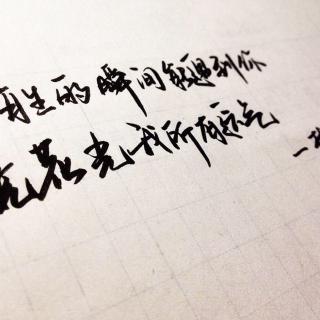 有生的瞬间能遇到你
竟花光我所有运气
一